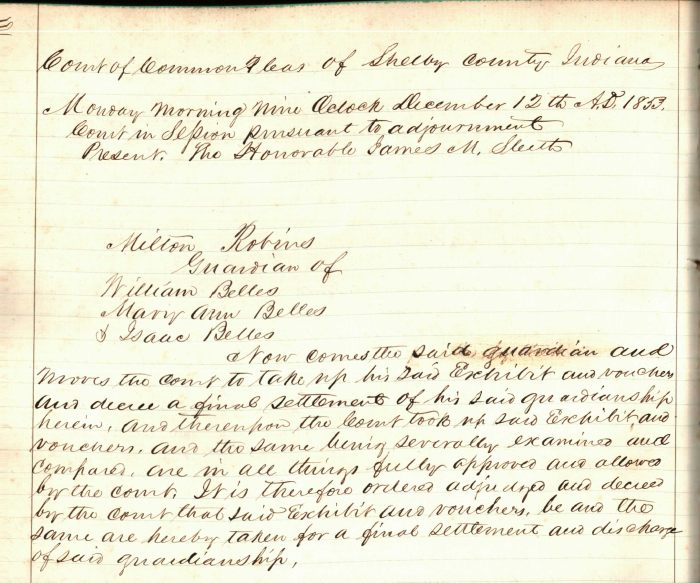 Court of Common Pleas of Shelby County Indiana
Monday morning nine Oclock December 12th A.D. 1853.
Court in Session pursuant to adjournment
Present. The Honorable James M. Sleeth
Milton Robins
Guardian of
William Belles
Mary Ann Belles
& Isaac Belles
Now comes the said guardian and
moves the court to take up his said Exhibit and vouchers
and decree a final settlement of his said guardianship
herein, and thereupon the Court took up said Exhibit and
vouchers, and the same being severally examined and
compared, are in all things fully approved and allowed
by the court. It is therefore ordered adjudged and decreed
by the Court that said Exhibit and vouchers, be and the
same are hereby taken for a final settlement and discharge
of said guardianship,